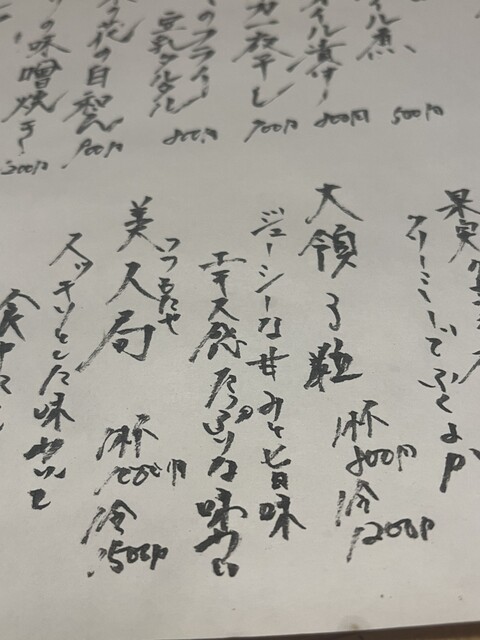 イル煮
500円
イル漬け
800円
カ一夜干し
700円
のフライ
豆乳タルタル
800円
の花の白和え
700円
の味噌焼き
果実
クリーミーでふくよか
大領る粒
杯
800円
冷
1200円
ジューシーな甘みと旨味
エキス感たっぷりな味わい
美人局
つつもたせ
杯
1000円
冷
1500円
スッキリとした味わいで
食中